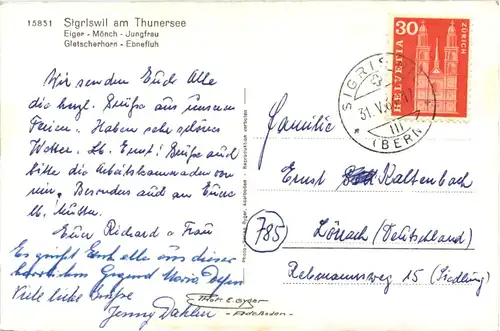 15851 Sigriswil am Thunersee
Eiger - Mönch - Jungfrau
Gletscherhorn - Ebnefluh
Wir senden Euch Alle
die herzl. Grüße aus unserem
Ferien. Haben sehr schönes
Wetter. Lb. Ernst! Grüße auch
bitte die Arbeitskameraden von
mir. Besonders auch an Eure
lb. Mutter.
Euer Richard u Frau
Es grüßt Euch alle aus dieser
herrlichen Gegend Maria
Viele liebe Grüße
Jenny Dahler
HELVETIA
30
ZÜRICH
SIGRISWIL
31.V.6
(BERN)
Familie
Ernst Kaltenbach
785
Lörrach (Deutschland)
Rebmannsweg 15 (Siedlung)
Gyger
Adelboden